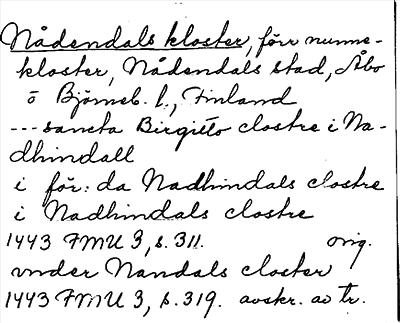 Nådendals kloster, förr nunne-
kloster, Nådendals stad, Åbo
o Björneb. l., Finland
--- sancta Birgitto clostre i Na-
dhindall
i för: da Nadhindals clostre
i Nadhindals clostre
1443 FMU 3, s. 311. orig.
vnder Nandals closter
1443 FMU 3, s. 319. avskr. av tr.